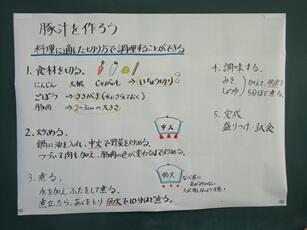 豚汁を作ろう
料理に適した切り方で調理することができる
1. 食材を切る。
にんじん 大根 じゃがいも → いちょう切り
ごぼう → ささがき (水にさらしておく)
豚肉 → 2～3cmの大きさ
2. 炒める。
鍋に油を入れ、中火で野菜を炒める。
つづいて肉も加え、豚肉の色が変わるまで炒める。
中火
3. 煮る。
水を加え、ふたをして煮る。
煮立ったら、あくをとり 弱火で10分ほど煮る。
弱火
なべ底に
火が
4. 調味する。
みそ
しょうゆ
加えて、弱火で
5分ほど煮る。
5. 完成
盛りつけ・試食